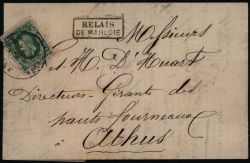 RELAIS
DE MARLOIE
Messieurs
et H. D'Huart
Directeurs-Gérants des
hauts fourneaux
Athus